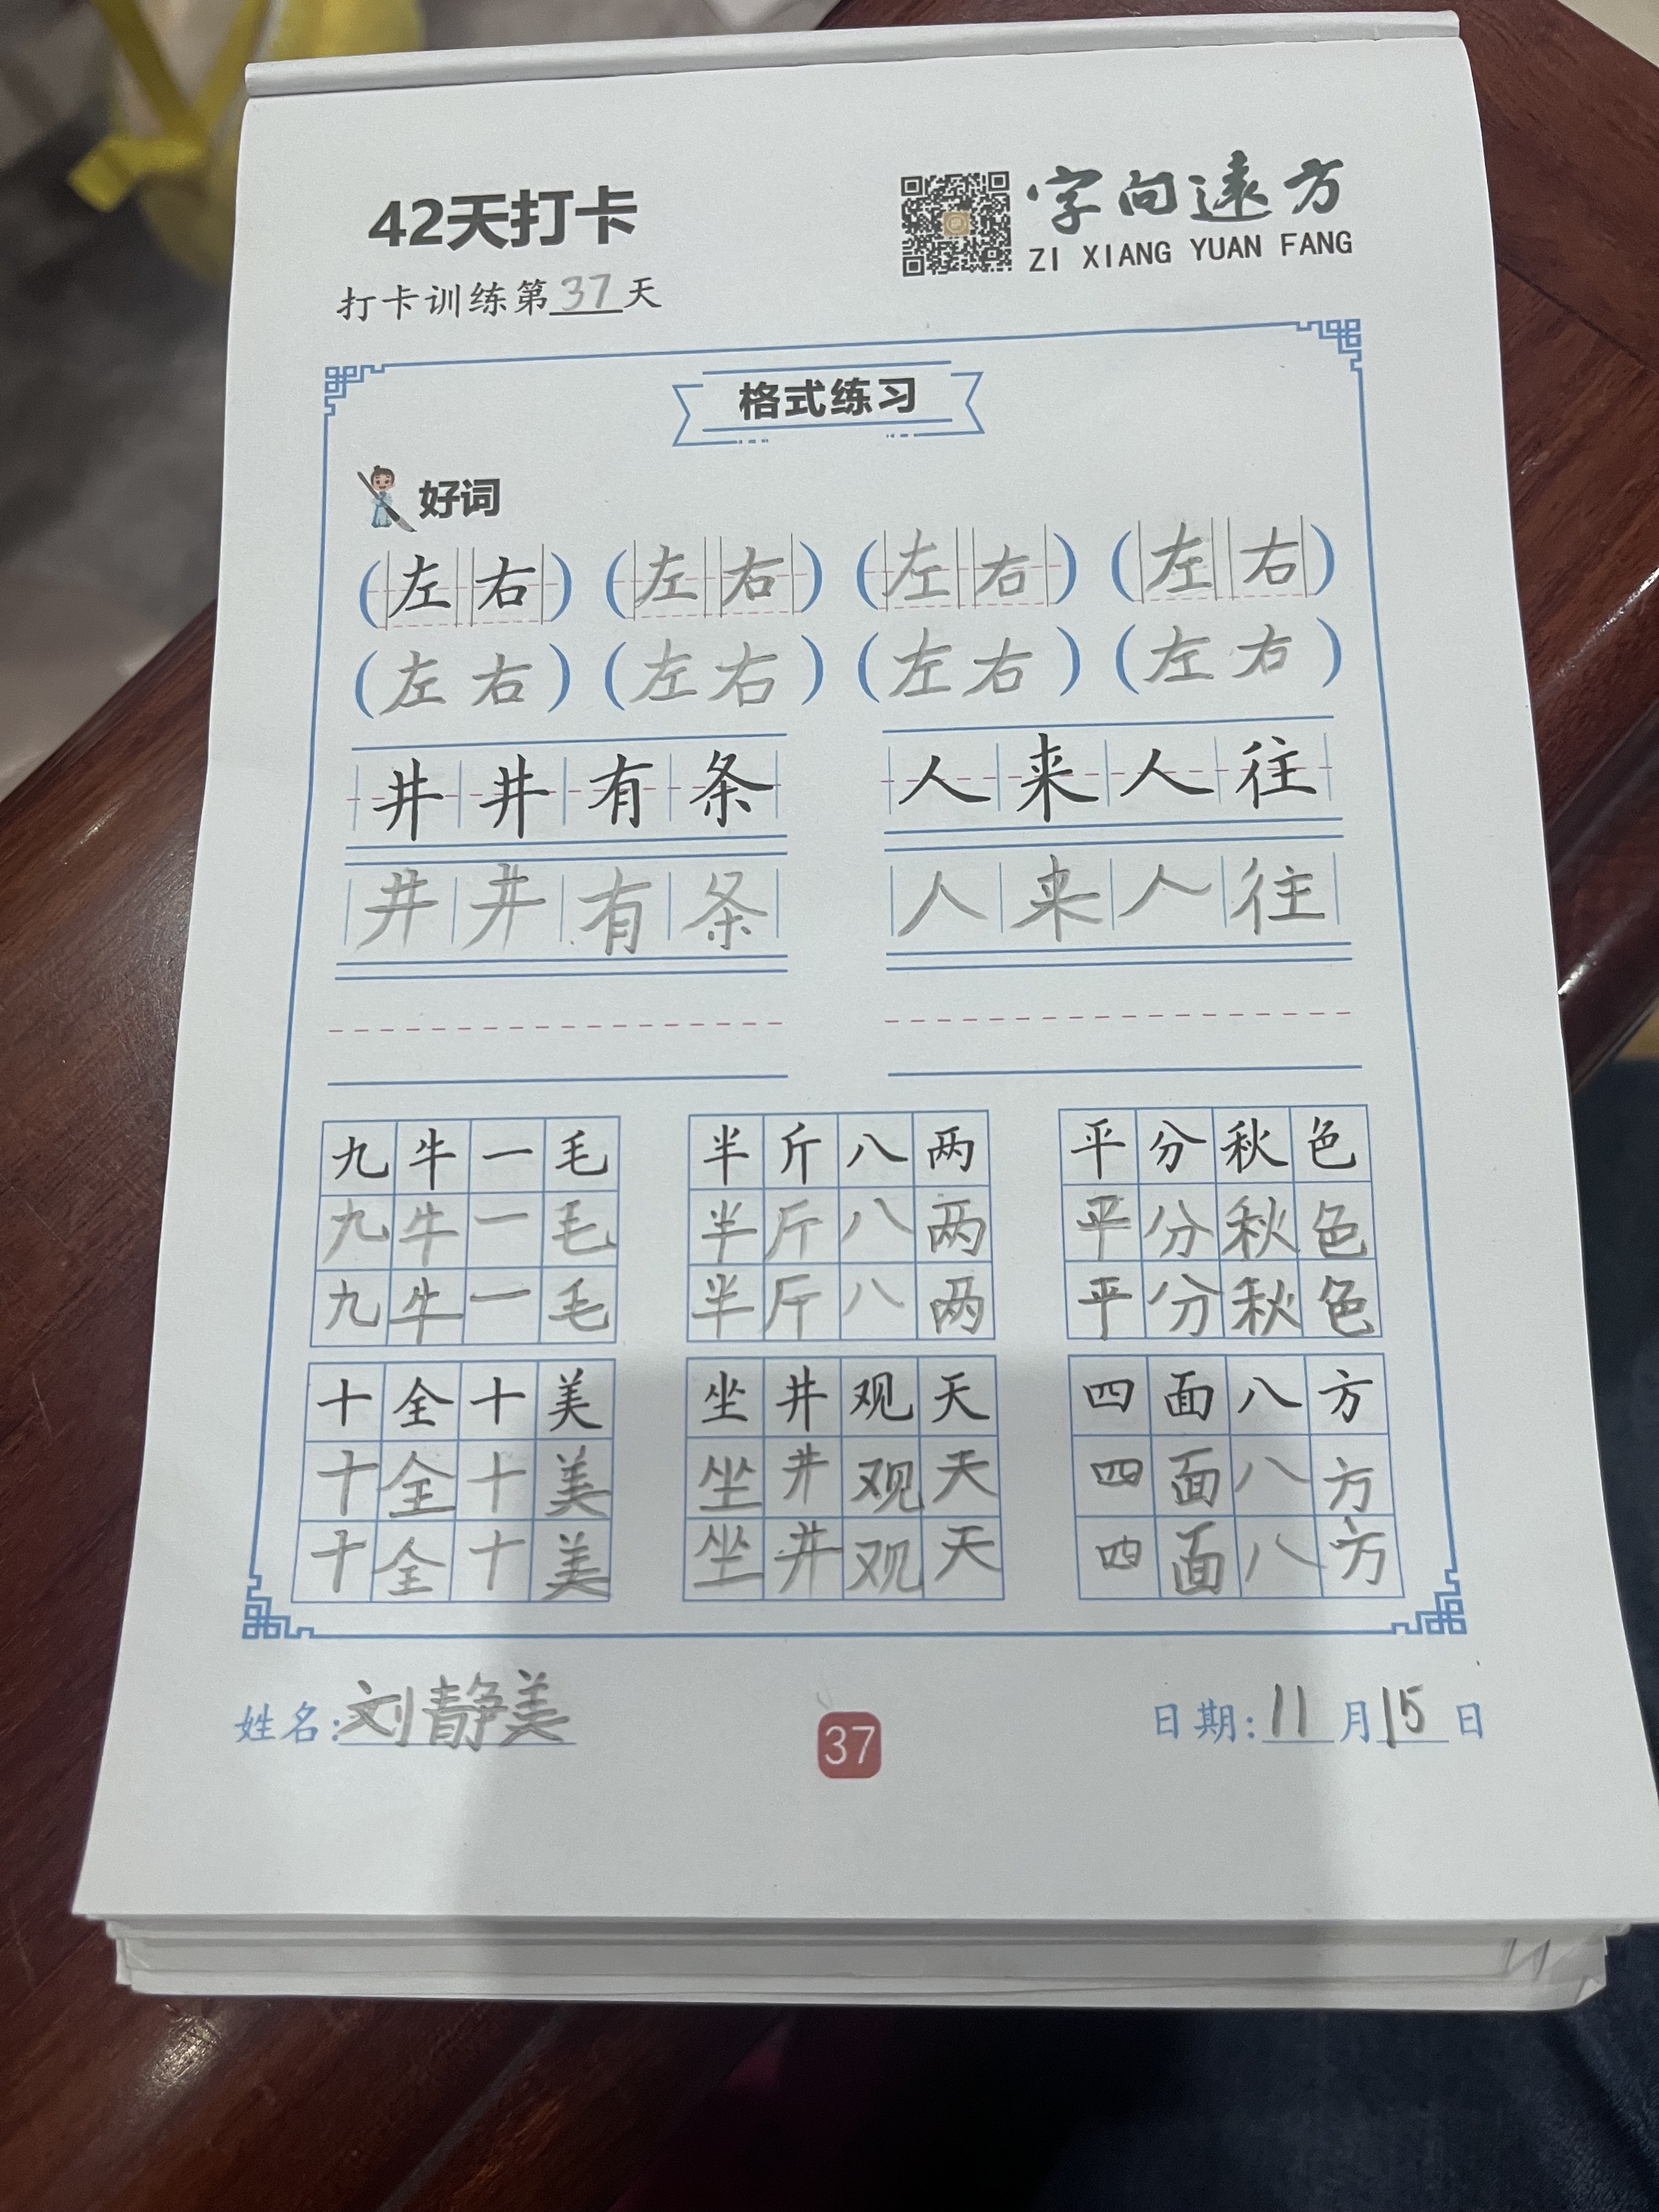 42天打卡
字向遠方
ZI XIANG YUAN FANG
打卡训练第37天
格式练习
好词
(左右) (左右) (左右) (左右)
(左右) (左右) (左右) (左右)
井井有条 人来人往
井井有条 人来人往
九牛一毛 半斤八两 平分秋色
九牛一毛 半斤八两 平分秋色
九牛一毛 半斤八两 平分秋色
十全十美 坐井观天 四面八方
十全十美 坐井观天 四面八方
十全十美 坐井观天 四面八方
姓名:刘静美 37 日期:11月15日